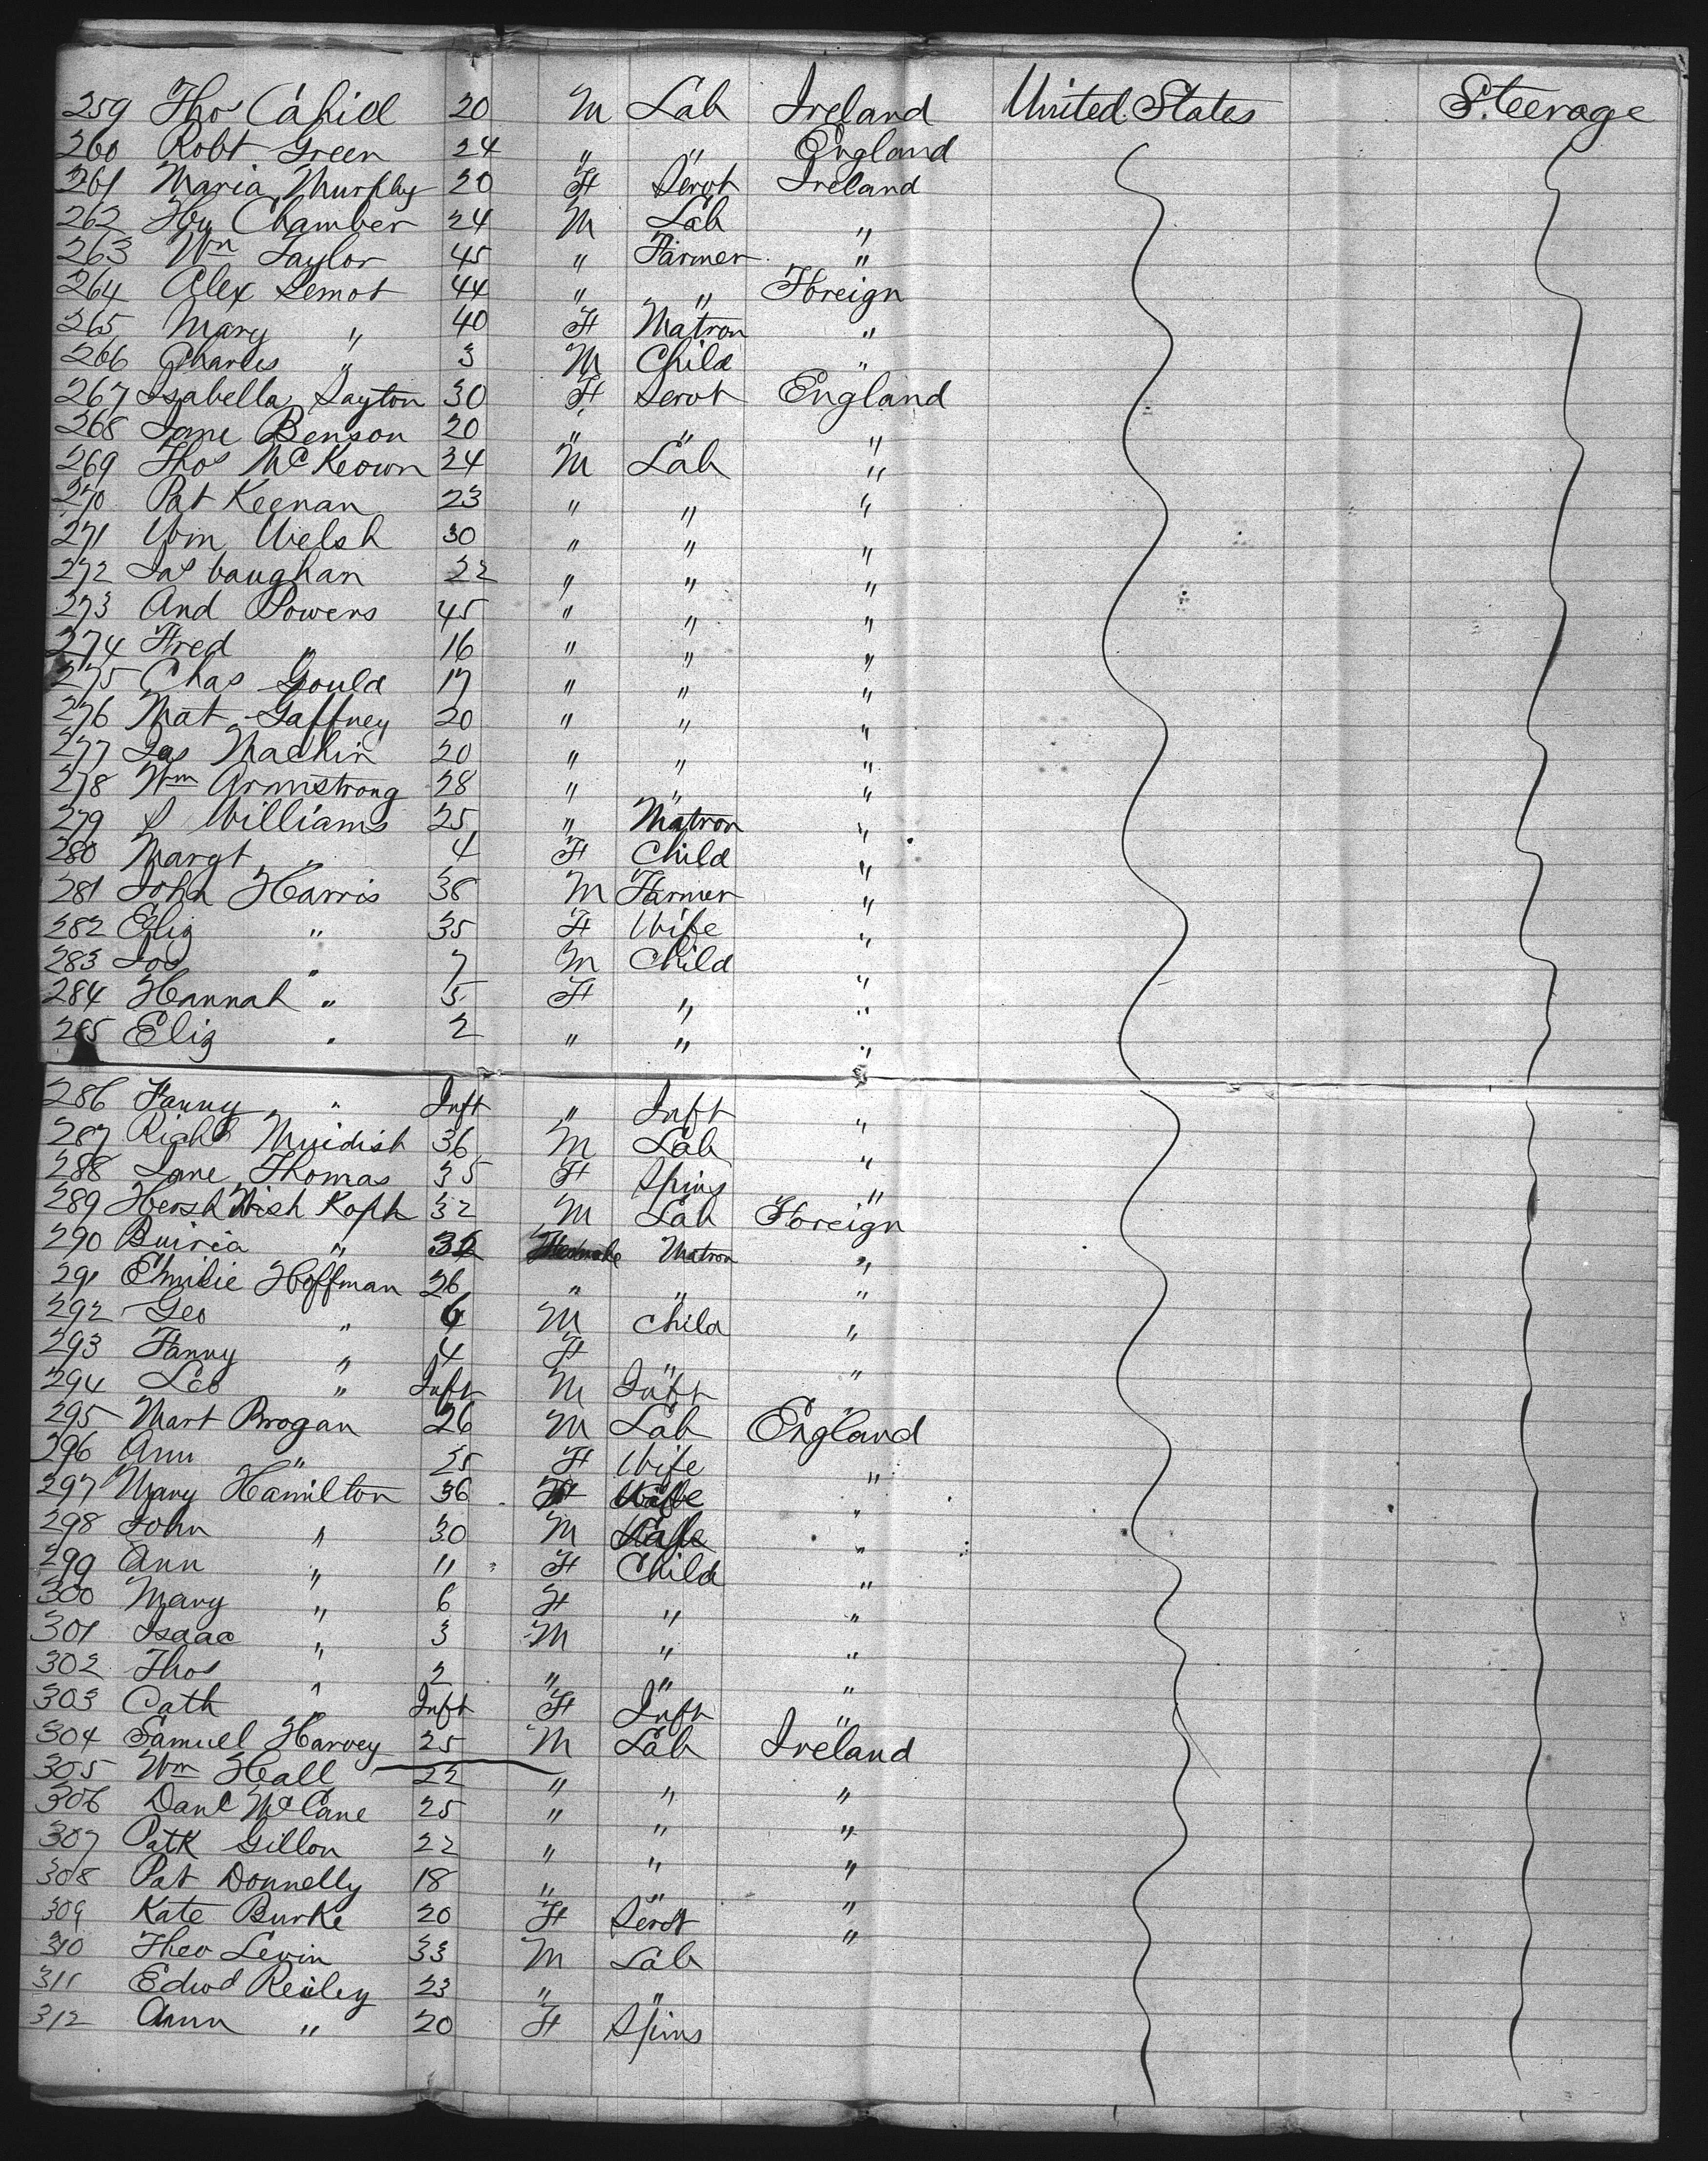 259 Thos Cahill 20 M Lab Ireland United States Steerage
260 Robt Green 24 " " England
261 Maria Murphy 20 F Servt Ireland
262 Hy Chamber 24 M Lab "
263 Wm Taylor 45 " Farmer "
264 Alex Lemot 44 " " Foreign
265 Mary " 40 F Matron "
266 Charles " 3 M Child "
267 Isabella Sayton 30 F Servt England
268 Jane Benson 20 " " "
269 Thos McKeown 24 M Lab "
270 Pat Keenan 23 " " "
271 Wm Welsh 30 " " "
272 Jas Vaughan 22 " " "
273 And Powers 45 " " "
274 Fred " 16 " " "
275 Chas Gould 17 " " "
276 Mat Gaffney 20 " " "
277 Jas Machin 20 " " "
278 Wm Armstrong 28 " " "
279 S Williams 25 " Matron "
280 Margt " 4 F Child "
281 John Harris 38 M Farmer "
282 Eliz " 35 F Wife "
283 Jos " 7 M Child "
284 Hannah " 5 F " "
285 Eliz " 2 " " "
286 Fanny " Inft " Inft "
287 Richd 36 M Lab "
288 Jane Thomas 35 F Spins "
289 Hersh Koph 32 M Lab Foreign
290 " Matron "
291 Emilie Hoffman 26 " " "
292 Geo " M Child "
293 Fanny " 4 F " "
294 Leo " Inft M Inft "
295 Mart Brogan 26 M Lab England
296 Ann " 25 F Wife "
297 Mary Hamilton 36 F "
298 John " 30 M "
299 Ann " 11 F Child "
300 Mary " 6 F " "
301 Isaac " 3 M " "
302 Thos " 2 " " "
303 Cath " Inft F Inft "
304 Samuel Harvey 25 M Lab Ireland
305 Wm Hall 22 " " "
306 Danl McCane 25 " " "
307 Patk Gillon 22 " " "
308 Pat Donnelly 18 " " "
309 Kate Burke 20 F Servt "
310 Theo Levin 33 M Lab
311 Edwd Reiley 23 " "
312 Ann " 20 F Spins